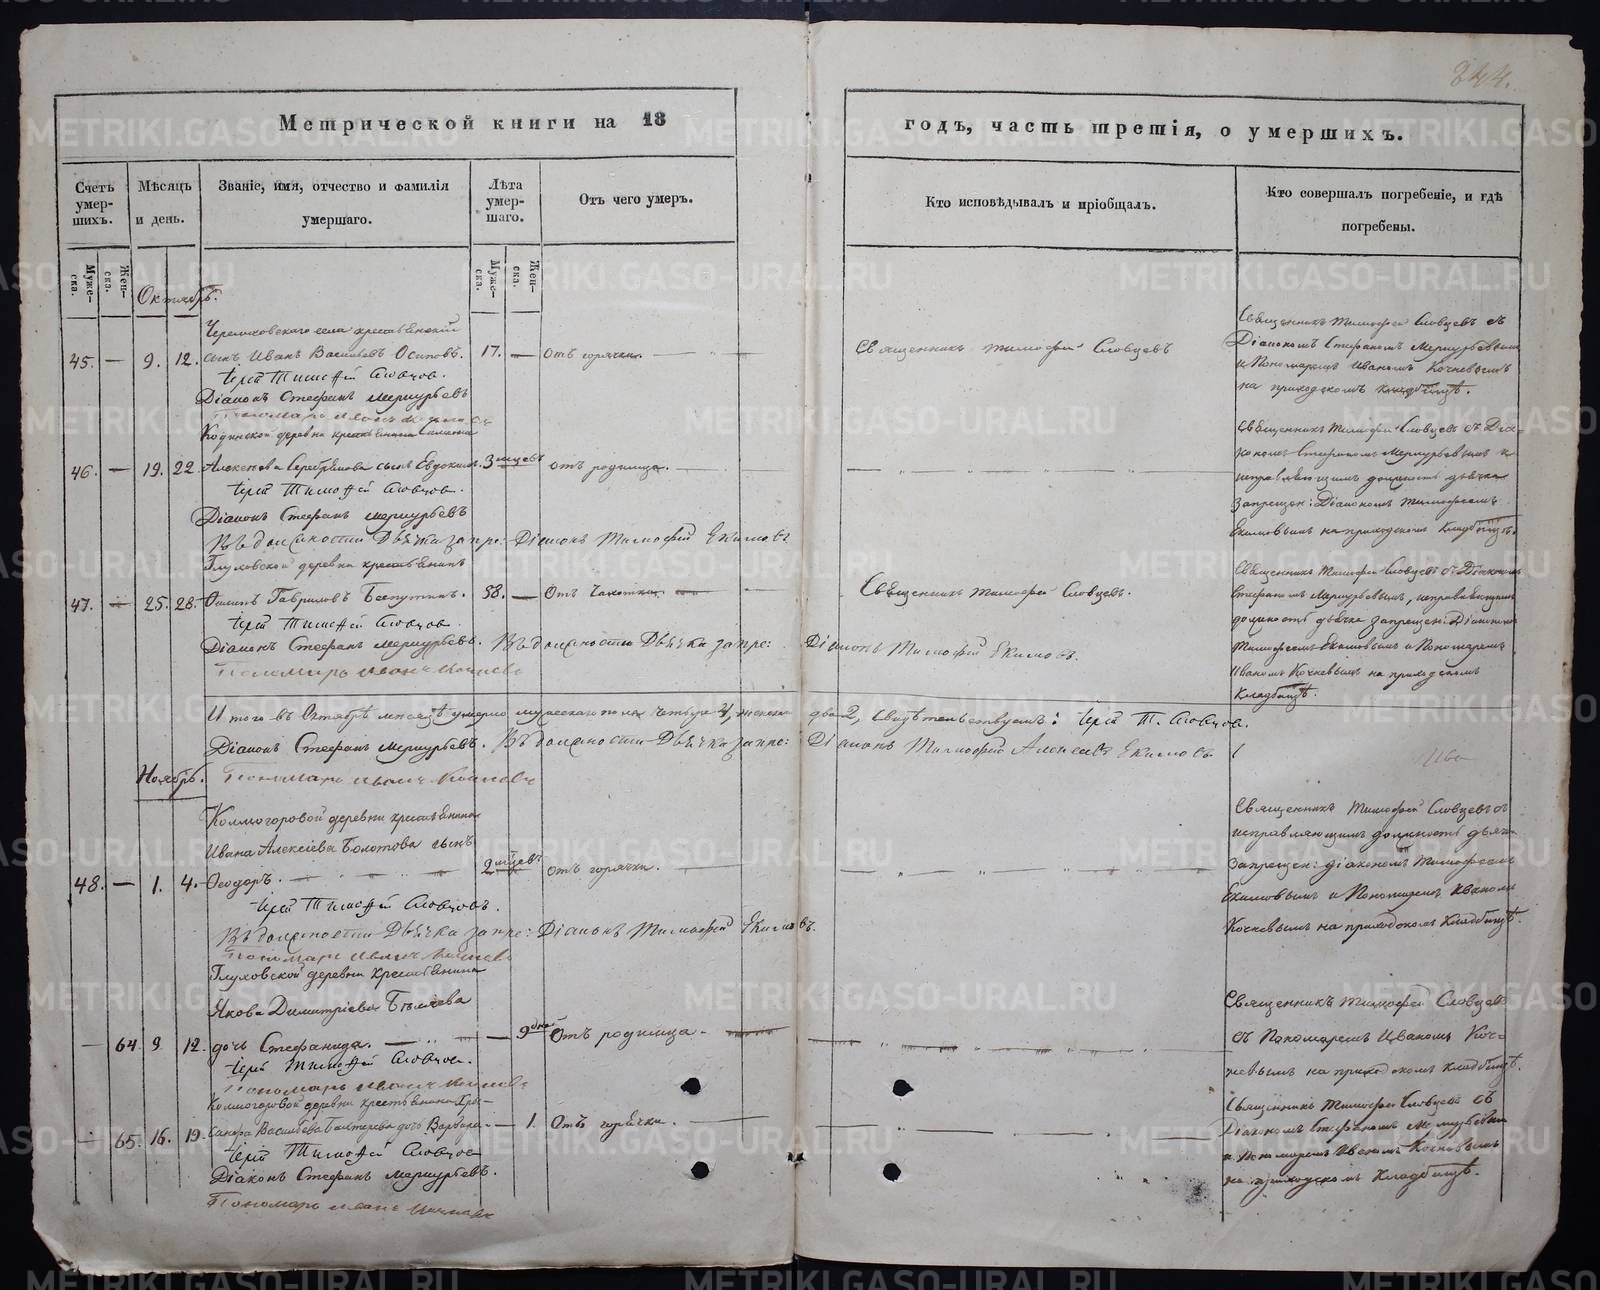 244.
Метрической книги на 18
годъ, часть третія, о умершихъ.
Счетъ умер-
шихъ.
Мѣсяцъ
и день.
Званіе, имя, отчество и фамилія
умершаго.
Лѣта
умер-
шаго.
Отъ чего умеръ.
Кто исповѣдывалъ и пріобщалъ.
Кто совершалъ погребеніе, и гдѣ
погребены.
Муже-
ска.
Жен-
ска.
Муже-
ска.
Жен-
ска.
Октябрь.
сынъ Иванъ Васильевъ Осиповъ.
45. — 9. 12. 17. — Отъ горячки.
Священникъ Тимофей Словцевъ
Священникъ Тимофей Словцевъ съ
Діакономъ Стефаномъ Меркурьевымъ
и Пономаремъ Иваномъ Кочневымъ
на приходскомъ кладбищѣ.
Іерей Тимофей Словцов.
Діаконъ Стефанъ Меркурьевъ
Пономарь Иванъ
деревни крестьянина
46. — 19. 22. Алексѣева Серебрякова сынъ Евдокимъ. 3 мѣсяцевъ отъ родимца.
Священникъ Тимофей Словцевъ съ Діа-
кономъ Стефаномъ Меркурьевымъ и
исправляющимъ должность дьячка
запрещен: Діакономъ Тимофеемъ
Екимовымъ на приходскомъ кладбищѣ.
Іерей Тимофей Словцов.
Діаконъ Стефанъ Меркурьевъ
Въ должности Дьячка запре: Діаконъ Тимофей Екимовъ
Глуховской деревни крестьянинъ
47. — 25. 28. Гавриловъ 58. — Отъ чахотки.
Священникъ Тимофей Словцевъ.
Священникъ Тимофей Словцевъ съ Діакономъ
Стефаномъ Меркурьевымъ, исправляющимъ
должность дьячка запрещен: Діакономъ
Тимофеемъ Екимовымъ и Пономаремъ
Иваномъ Кочневымъ на приходскомъ
кладбищѣ.
Іерей Тимофей Словцов.
Діаконъ Стефанъ Меркурьевъ. Въ должности Дьячка запре: Діаконъ Тимофей Екимовъ.
Пономарь Иванъ Кочневъ
Итого въ Октябрѣ мѣсяцѣ умерло мужескаго пола четыре 4, женска два 2, Свидѣтельствуемъ: Іерей Т. Словцов.
Діаконъ Стефанъ Меркурьевъ. Въ должности Дьячка запре: Діаконъ Тимофей Алексѣевъ Екимовъ
Ноябрь. Пономарь Иванъ Кочневъ
Колмогоровой деревни крестьянина
Ивана Алексѣева Болотова сынъ
48. — 1. 4. Ѳеодоръ. 2 мѣсяцевъ Отъ горячки.
Священникъ Тимофей Словцевъ съ
исправляющимъ должность дьяч-
запрещен: діакономъ Тимофеемъ
Екимовымъ и Пономаремъ Иваномъ
Кочневымъ на приходскомъ кладбищѣ.
Іерей Тимофей Словцовъ.
Въ должности Дьячка запре: Діаконъ Тимофей Екимовъ.
Пономарь Иванъ Кочневъ
Глуховской деревни крестьянина
Якова Димитріева
— 64. 9 12. дочь Стефанида. — 9 дней Отъ родимца.
Священникъ Тимофей Словцевъ
съ Пономаремъ Иваномъ Коч-
невымъ на приходскомъ кладбищѣ.
Іерей Тимофей Словцов.
Пономарь Иванъ Кочневъ
Колмогоровой деревни крестьянина
— 65. 16. 19. Васильева дочь Варвара. — 1. Отъ горячки.
Священникъ Тимофей Словцевъ съ
Діакономъ Стефаномъ Меркурьевымъ
и Пономаремъ Иваномъ Кочневымъ
на приходскомъ кладбищѣ.
Іерей Тимофей Словцов
Діаконъ Стефанъ Меркурьевъ.
Пономарь Иванъ Кочневъ
METRIKI.GASO-URAL.RU